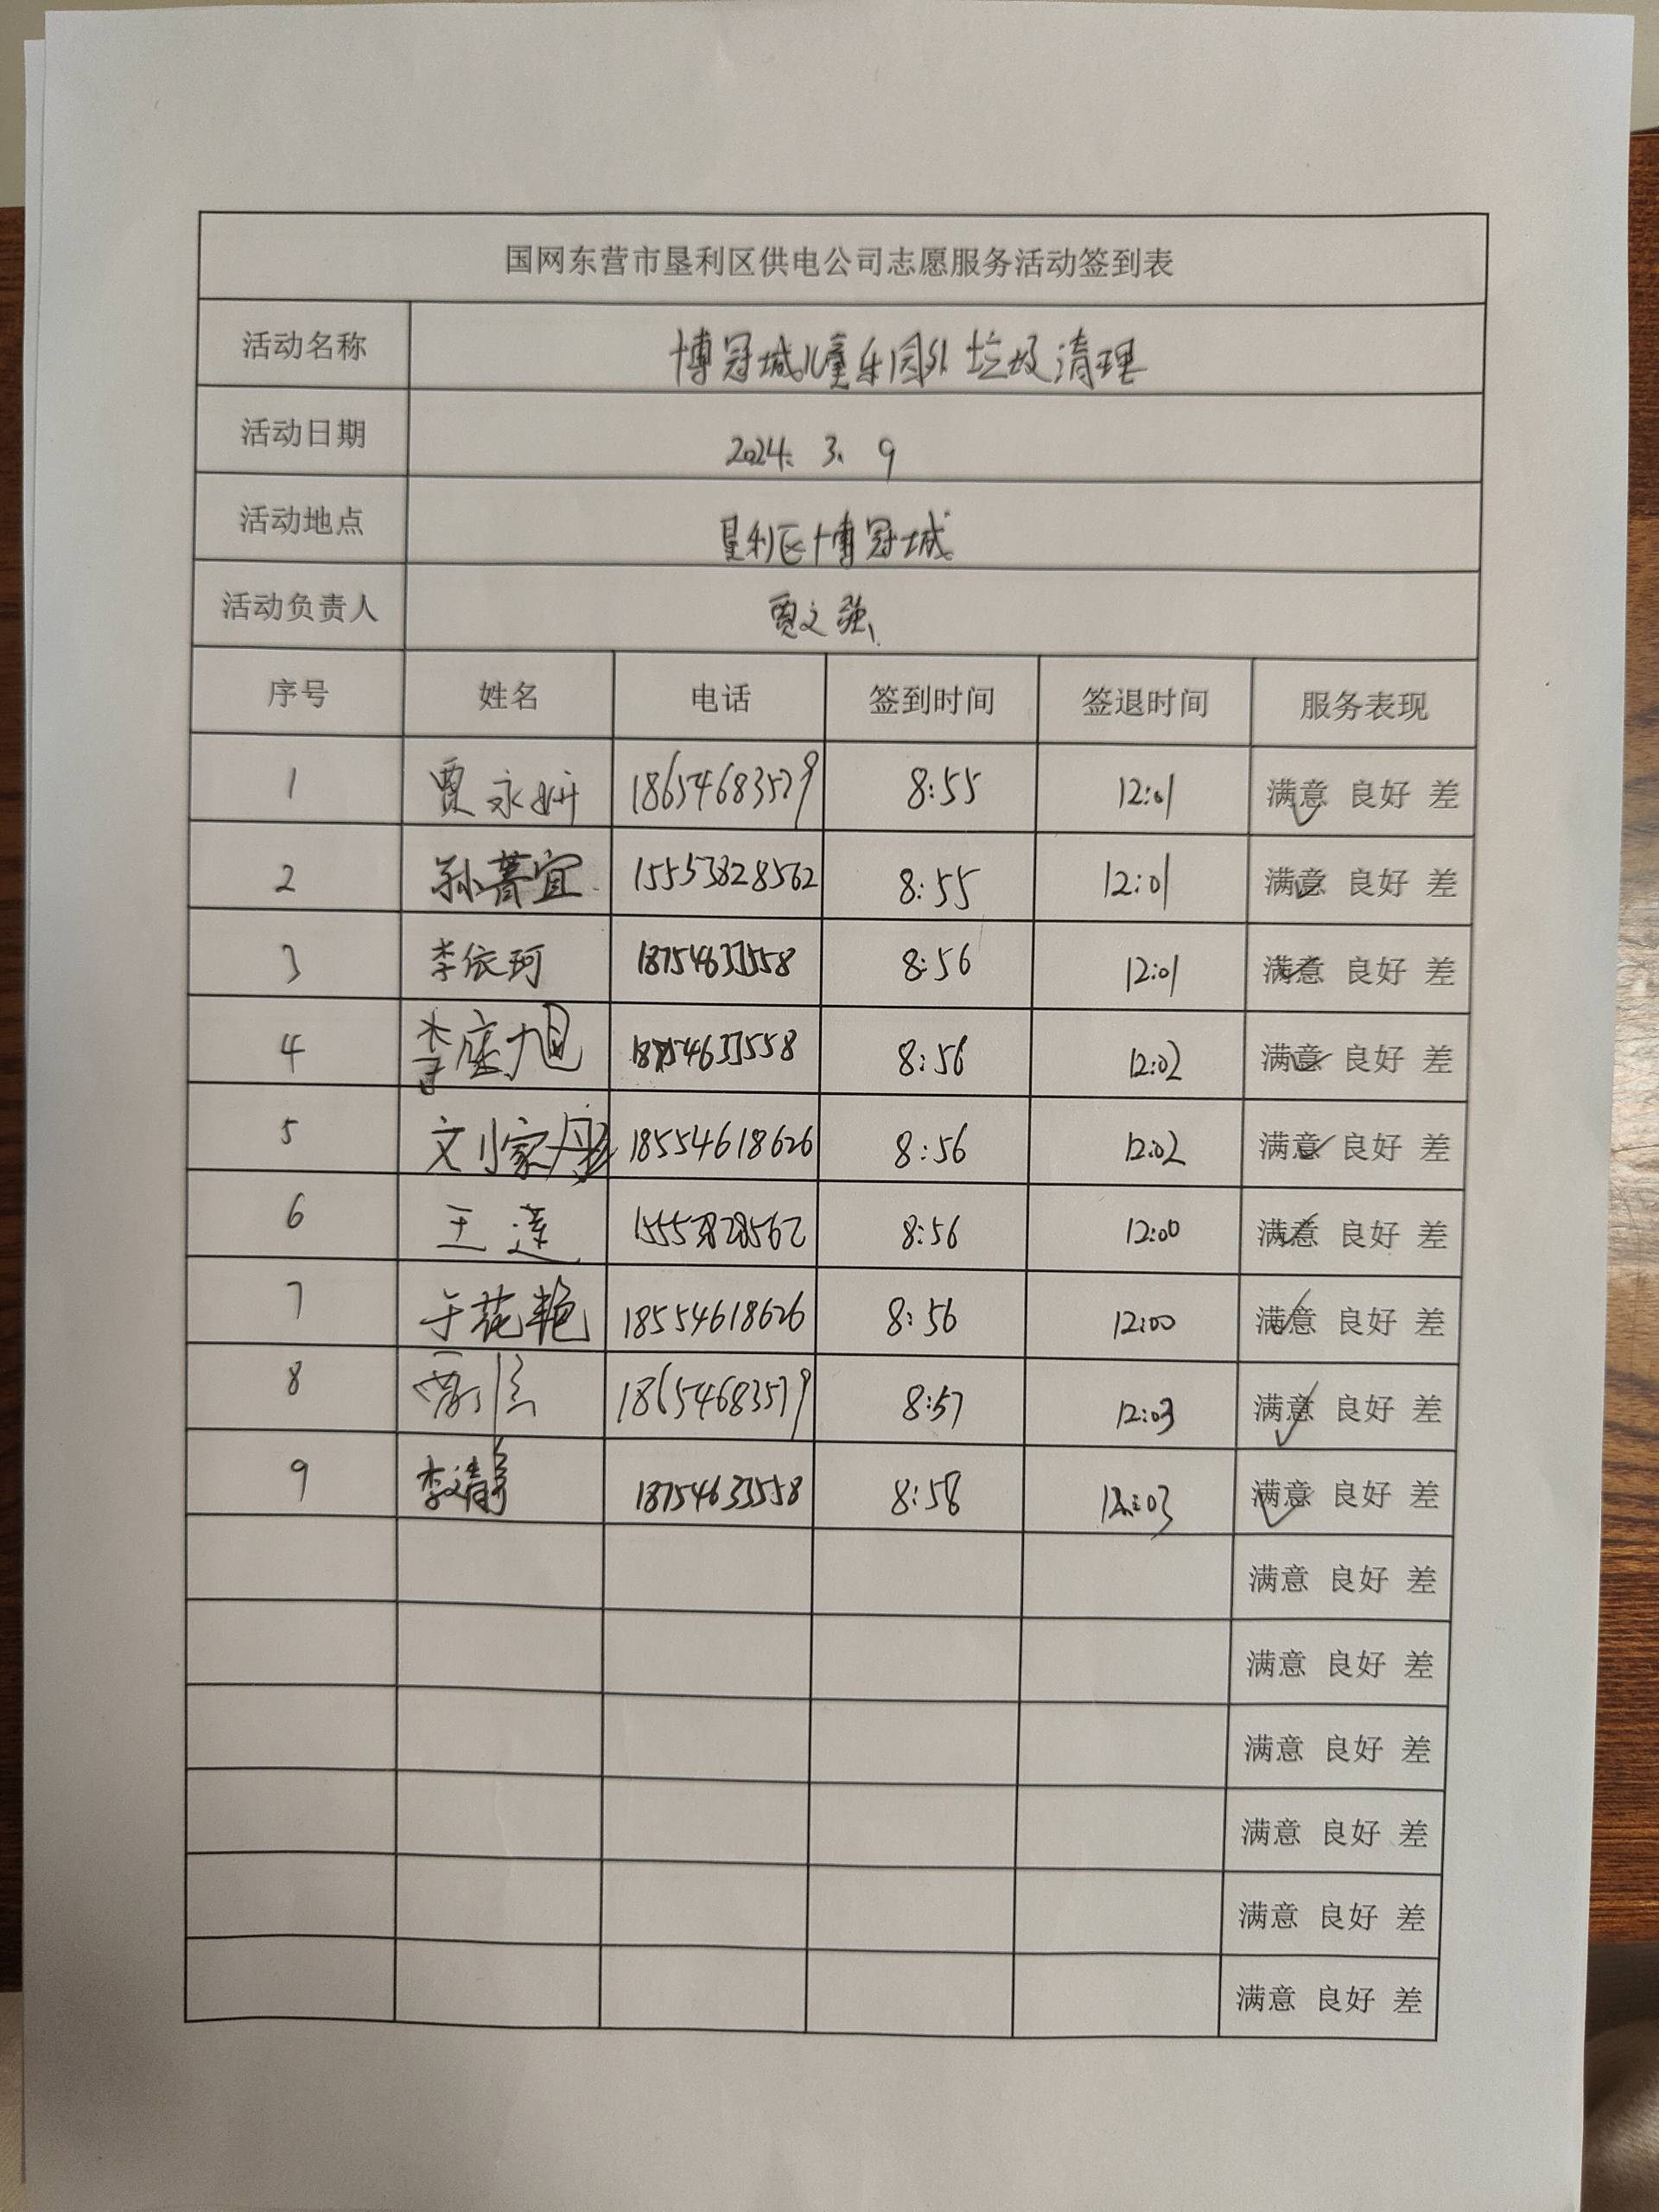 国网东营市垦利区供电公司志愿服务活动签到表
活动名称 博冠城儿童乐园外垃圾清理
活动日期 2024.3.9
活动地点 垦利区博冠城
活动负责人 贾文强
序号 姓名 电话 签到时间 签退时间 服务表现
1 贾永妍 18654683579 8:55 12:01 满意 良好 差
2 孙菁宜 15553828562 8:55 12:01 满意 良好 差
3 李依珂 18754633558 8:56 12:01 满意 良好 差
4 李庭旭 18754633558 8:56 12:02 满意 良好 差
5 文小家 18554618626 8:56 12:02 满意 良好 差
6 王莲 15553828562 8:56 12:00 满意 良好 差
7 于花艳 18554618626 8:56 12:00 满意 良好 差
8 18654683579 8:57 12:03 满意 良好 差
9 李文静 18754633558 8:58 12:03 满意 良好 差
满意 良好 差
满意 良好 差
满意 良好 差
满意 良好 差
满意 良好 差
满意 良好 差